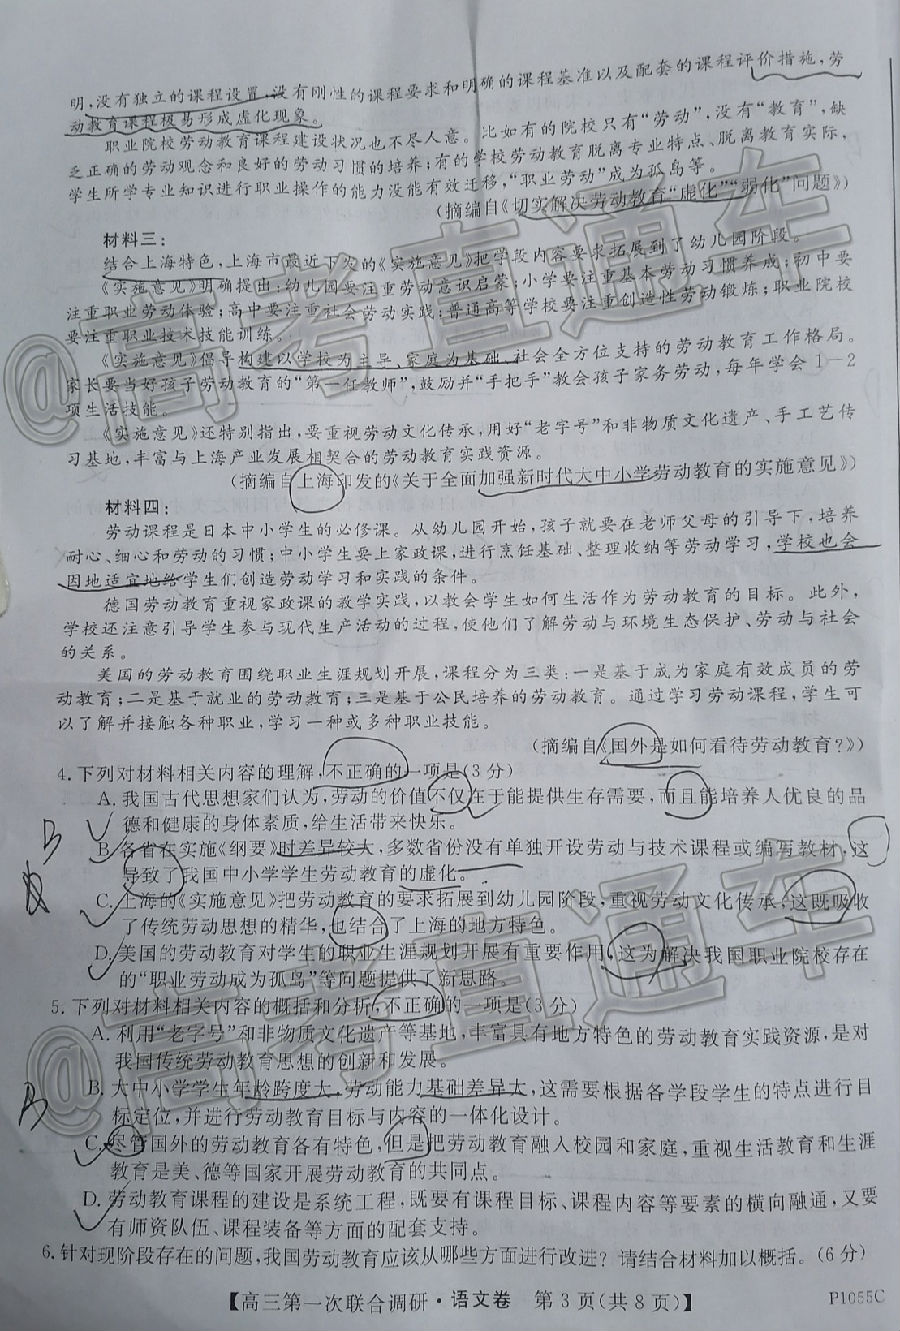 明,没有独立的课程设置,没有刚性的课程要求和明确的课程基准以及配套的课程评价措施,劳
动教育课程极易形成虚化现象。
职业院校劳动教育课程建设状况也不尽人意。比如有的院校只有“劳动”,没有“教育”,缺
乏正确的劳动观念和良好的劳动习惯的培养;有的学校劳动教育脱离专业特点、脱离教育实际,
学生所学专业知识进行职业操作的能力没能有效迁移,“职业劳动”成为孤岛等。
(摘编自《切实解决劳动教育“虚化”“弱化”问题》)
材料三:
结合上海特色,上海市最近下发的《实施意见》把学段内容要求拓展到了幼儿园阶段。
《实施意见》明确提出:幼儿园要注重劳动意识启蒙;小学要注重基本劳动习惯养成;初中要
注重职业劳动体验;高中要注重社会劳动实践;普通高等学校要注重创造性劳动锻炼;职业院校
要注重职业技术技能训练。
《实施意见》倡导构建以学校为主导、家庭为基础、社会全方位支持的劳动教育工作格局。
家长要当好孩子劳动教育的“第一任教师”,鼓励并“手把手”教会孩子家务劳动,每年学会1-2
项生活技能。
《实施意见》还特别指出,要重视劳动文化传承,用好“老字号”和非物质文化遗产、手工艺传
习基地,丰富与上海产业发展相契合的劳动教育实践资源。
(摘编自上海印发的《关于全面加强新时代大中小学劳动教育的实施意见》)
材料四:
劳动课程是日本中小学生的必修课。从幼儿园开始,孩子就要在老师父母的引导下,培养
耐心、细心和劳动的习惯;中小学生要上家政课,进行烹饪基础、整理收纳等劳动学习,学校也会
因地适宜地给学生们创造劳动学习和实践的条件。
德国劳动教育重视家政课的教学实践,以教会学生如何生活作为劳动教育的目标。此外,
学校还注意引导学生参与现代生产活动的过程,使他们了解劳动与环境生态保护、劳动与社会
的关系。
美国的劳动教育围绕职业生涯规划开展,课程分为三类:一是基于成为家庭有效成员的劳
动教育;二是基于就业的劳动教育;三是基于公民培养的劳动教育。通过学习劳动课程,学生可
以了解并接触各种职业,学习一种或多种职业技能。
(摘编自《国外是如何看待劳动教育?》)
4.下列对材料相关内容的理解,不正确的一项是(3分)
A.我国古代思想家们认为,劳动的价值不仅在于能提供生存需要,而且能培养人优良的品
德和健康的身体素质,给生活带来快乐。
B.各省在实施《纲要》时差异较大,多数省份没有单独开设劳动与技术课程或编写教材,这
导致了我国中小学学生劳动教育的虚化。
C.上海的《实施意见》把劳动教育的要求拓展到幼儿园阶段,重视劳动文化传承,这既吸收
了传统劳动思想的精华,也结合了上海的地方特色。
D.美国的劳动教育对学生的职业生涯规划开展有重要作用,这为解决我国职业院校存在
的“职业劳动成为孤岛”等问题提供了新思路。
5.下列对材料相关内容的概括和分析,不正确的一项是(3分)
A.利用“老字号”和非物质文化遗产等基地,丰富具有地方特色的劳动教育实践资源,是对
我国传统劳动教育思想的创新和发展。
B.大中小学学生年龄跨度大,劳动能力基础差异大,这需要根据各学段学生的特点进行目
标定位,并进行劳动教育目标与内容的一体化设计。
C.尽管国外的劳动教育各有特色,但是把劳动教育融入校园和家庭,重视生活教育和生涯
教育是美、德等国家开展劳动教育的共同点。
D.劳动教育课程的建设是系统工程,既要有课程目标、课程内容等要素的横向融通,又要
有师资队伍、课程装备等方面的配套支持。
6.针对现阶段存在的问题,我国劳动教育应该从哪些方面进行改进?请结合材料加以概括。(6分)
【高三第一次联合调研·语文卷 第3页(共8页)】
P1055C
B
@高考直通车
@高考直通车